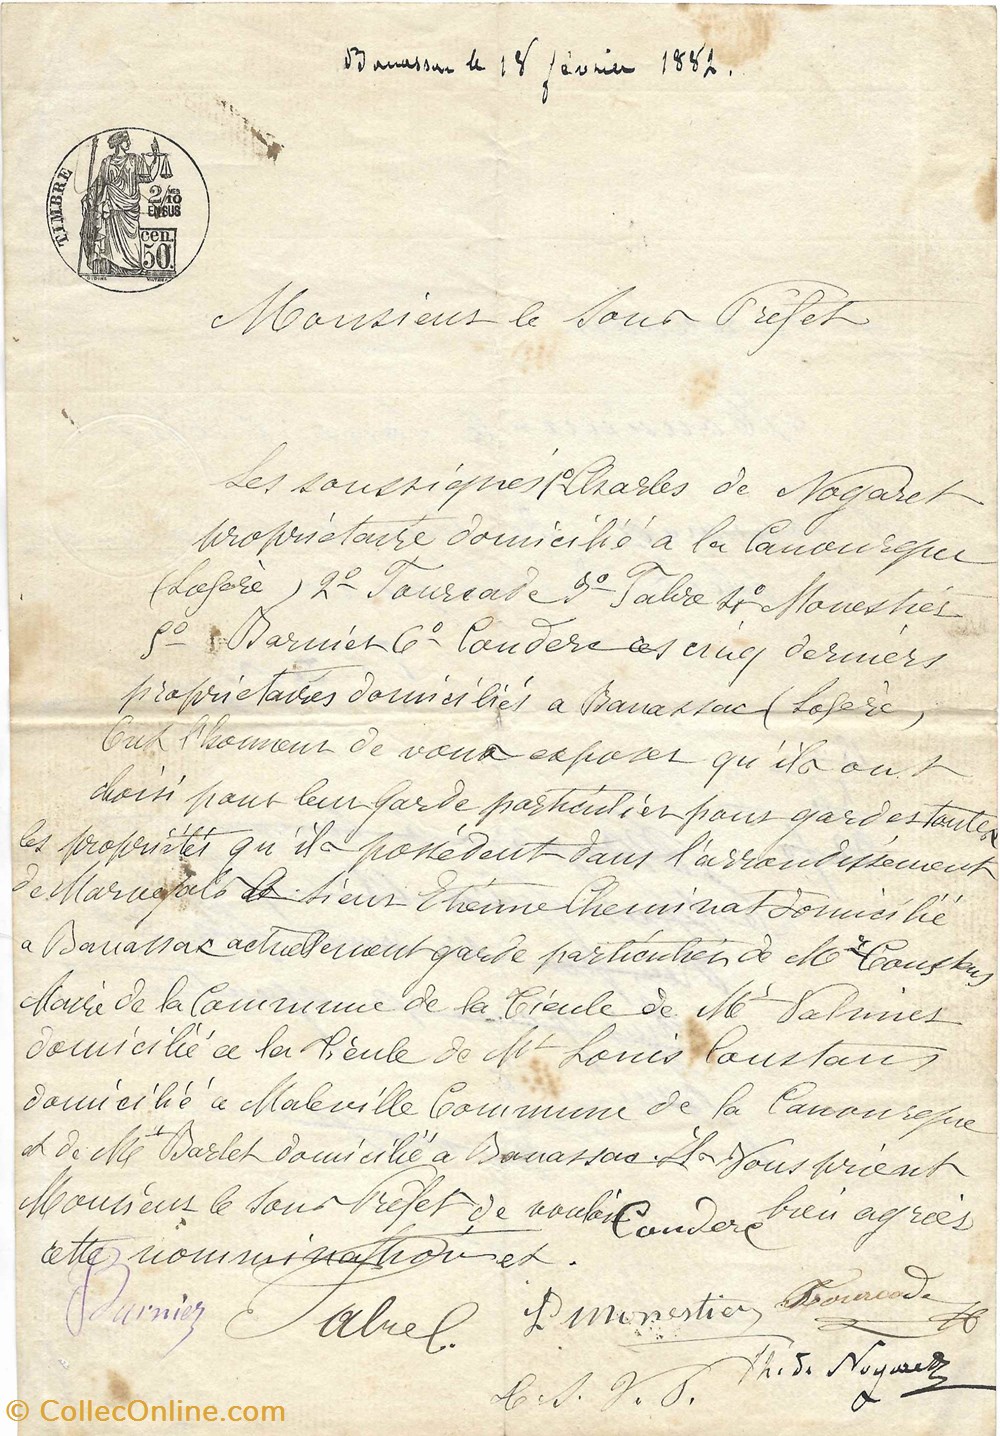 Banassac le 18 février 1882.
TIMBRE
2/10 EN SUS
50 cen.
Monsieur le Sous Préfet
Les soussignés 1º Charles de Nogaret
propriétaire domicilié a la Canourque
(Losère) 2º Fourcade 3º Fabre 4º Monestier
5º Barnier 6º Couderc ces cinq derniers
propriétaires domiciliés a Banassac (Losère)
Ont l'honneur de vous exposer qu'ils ont
choisi pour leur Garde particulier pour garder toutes
les propriétés qu'ils possèdent dans l'arrondissement
de Marvejols le sieur Etienne Cheminat domicilié
a Banassac actuellement garde particulier de Mr Constans
Maire de la Commune de la Tieule de Mr Palmier
domicilié a la Tieule de Mr Louis Constans
domicilié a Maleville Commune de la Canourque
et de Mr Barlet domicilié a Banassac. Ils Vous prient
Monsieur le Sous Préfet de vouloir bien agréer
cette nommination et.
Couderc
Barnier
Fabre
P Monestier
Fourcade
Ch. de Nogaret
T. S. V. P.
© CollecOnline.com